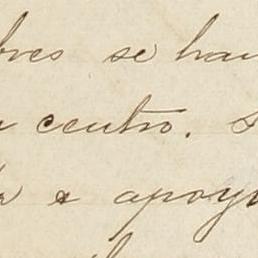 bres se han
centro.
a apoy